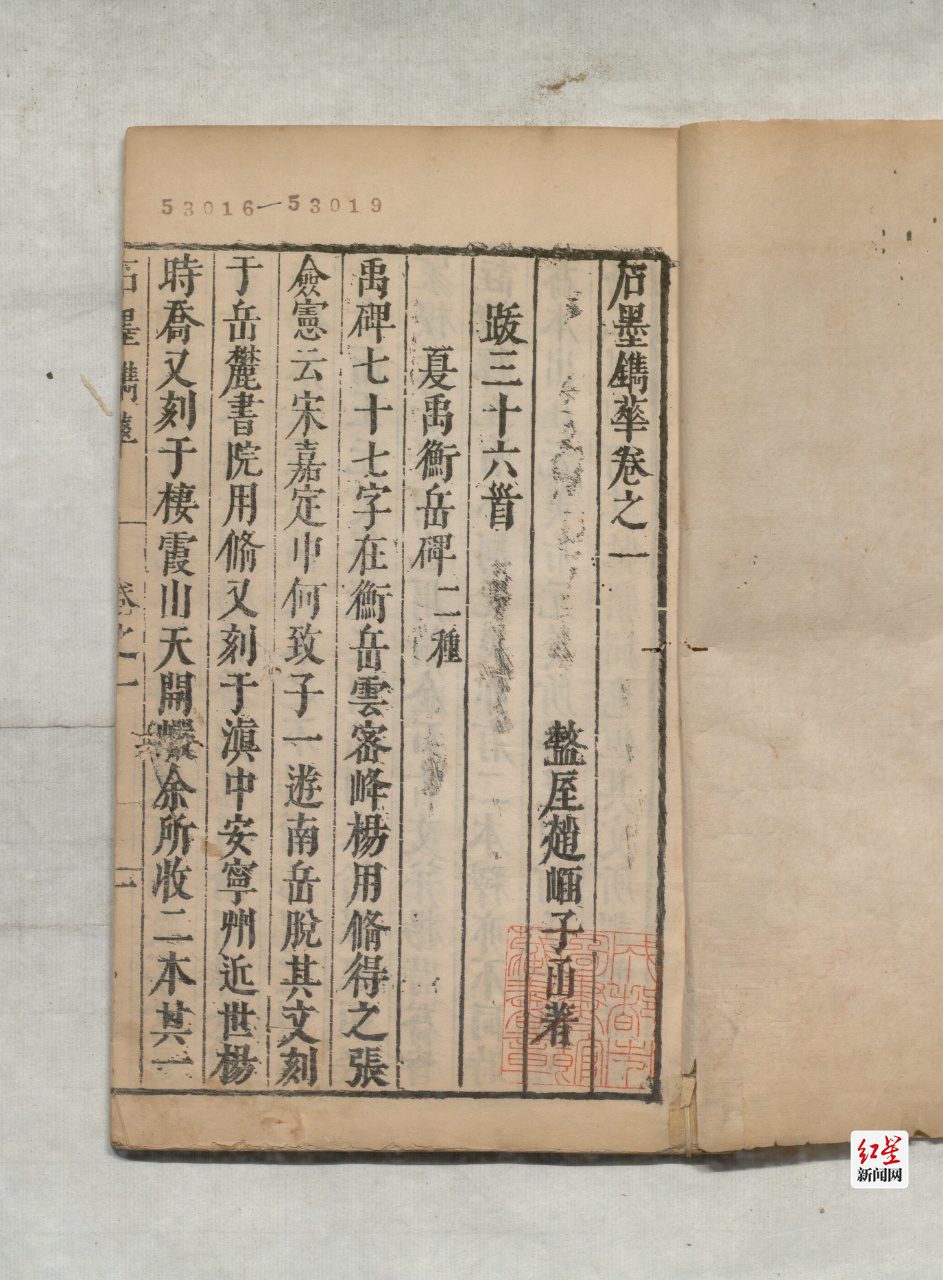 53016—53019
石墨鐫華卷之一
盩厔趙崡子函著
跋三十六首
夏禹衡岳碑二種
禹碑七十七字在衡岳雲密峰楊用脩得之張
僉憲云宋嘉定中何致子一遊南岳脫其文刻
于岳麓書院用脩又刻于滇中安寧州近世楊
時喬又刻于棲霞山天開巖余所收二本其一
石墨鐫華 卷之一 一
红星
新闻网